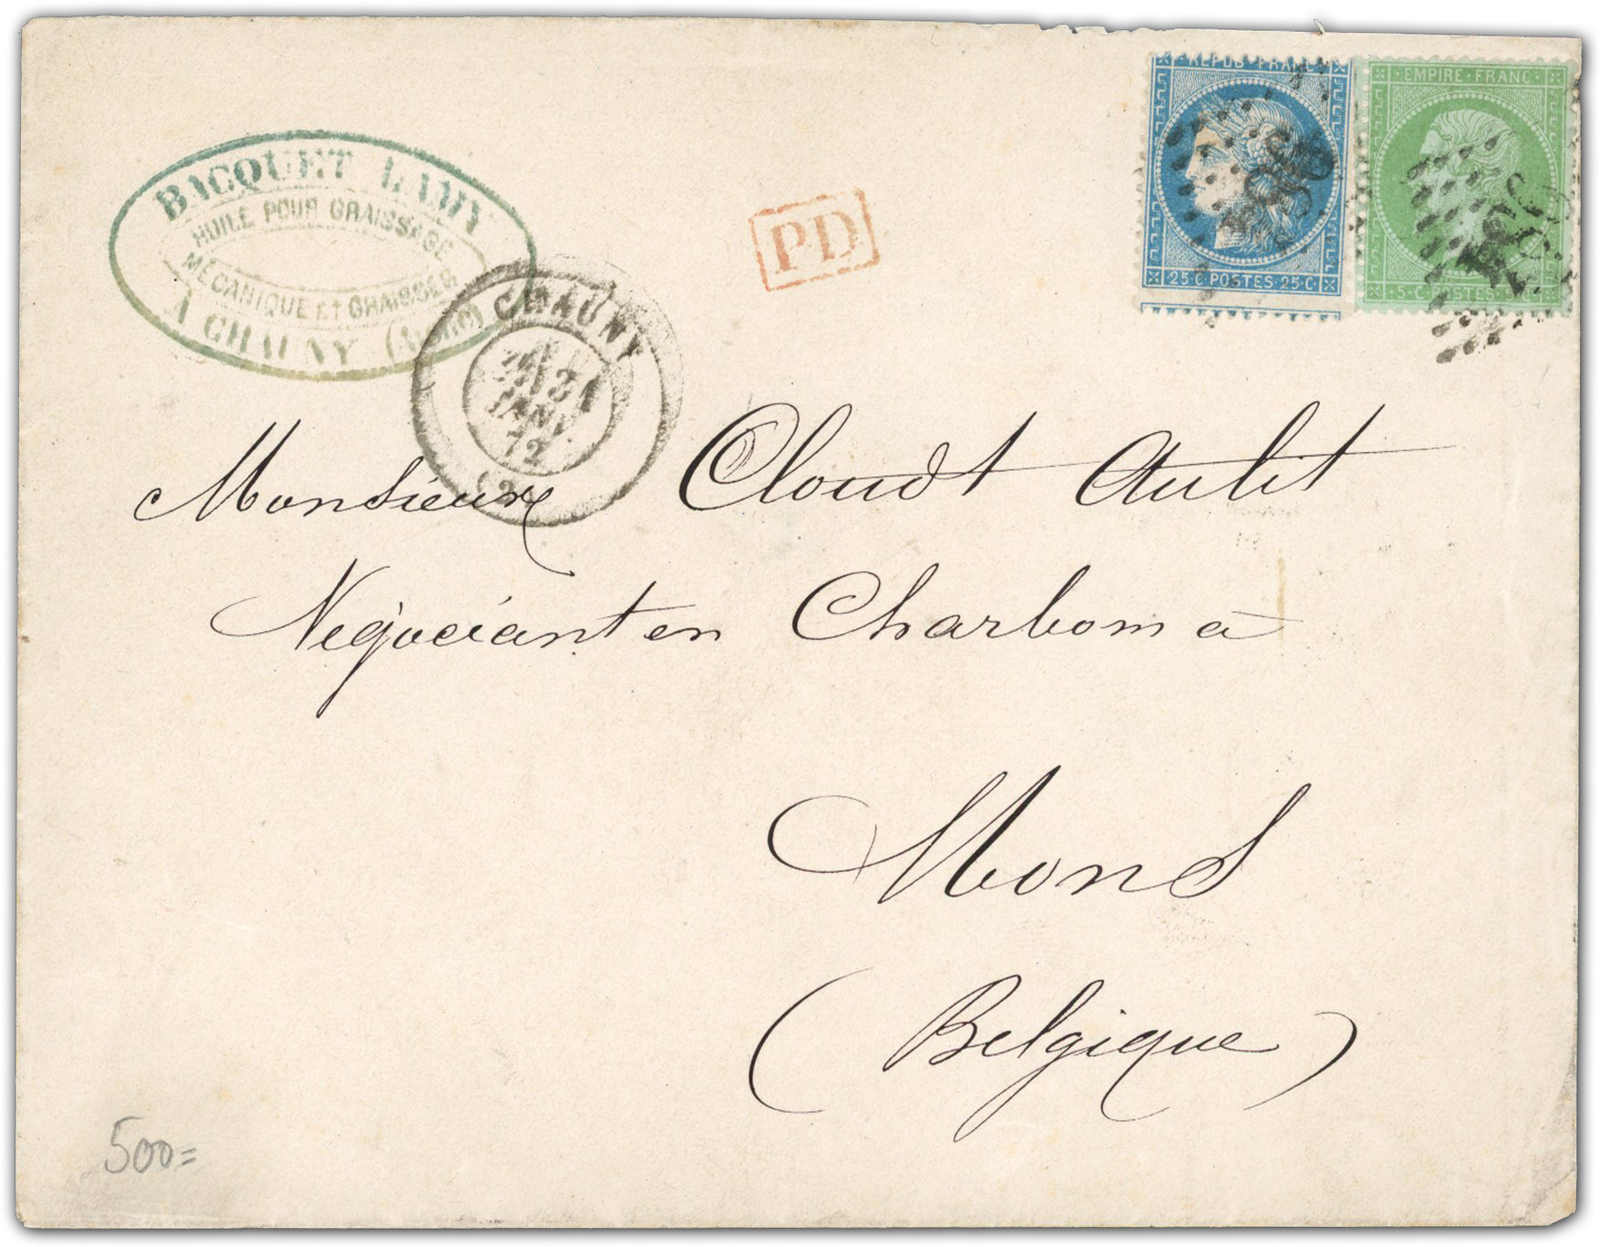 REPUB·FRANC·
25·C·POSTES·25·C·
EMPIRE·FRANC·
5·C·POSTES
BACQUET LAMY
HUILE POUR GRAISSAGE
MÉCANIQUE ET GRAISSES
À CHAUNY (Aisne)
PD
CHAUNY
31
JANV
72
(2)
Monsieur Cloudt Aulit
Négociant en Charbom à
Mons
(Belgique)
500=